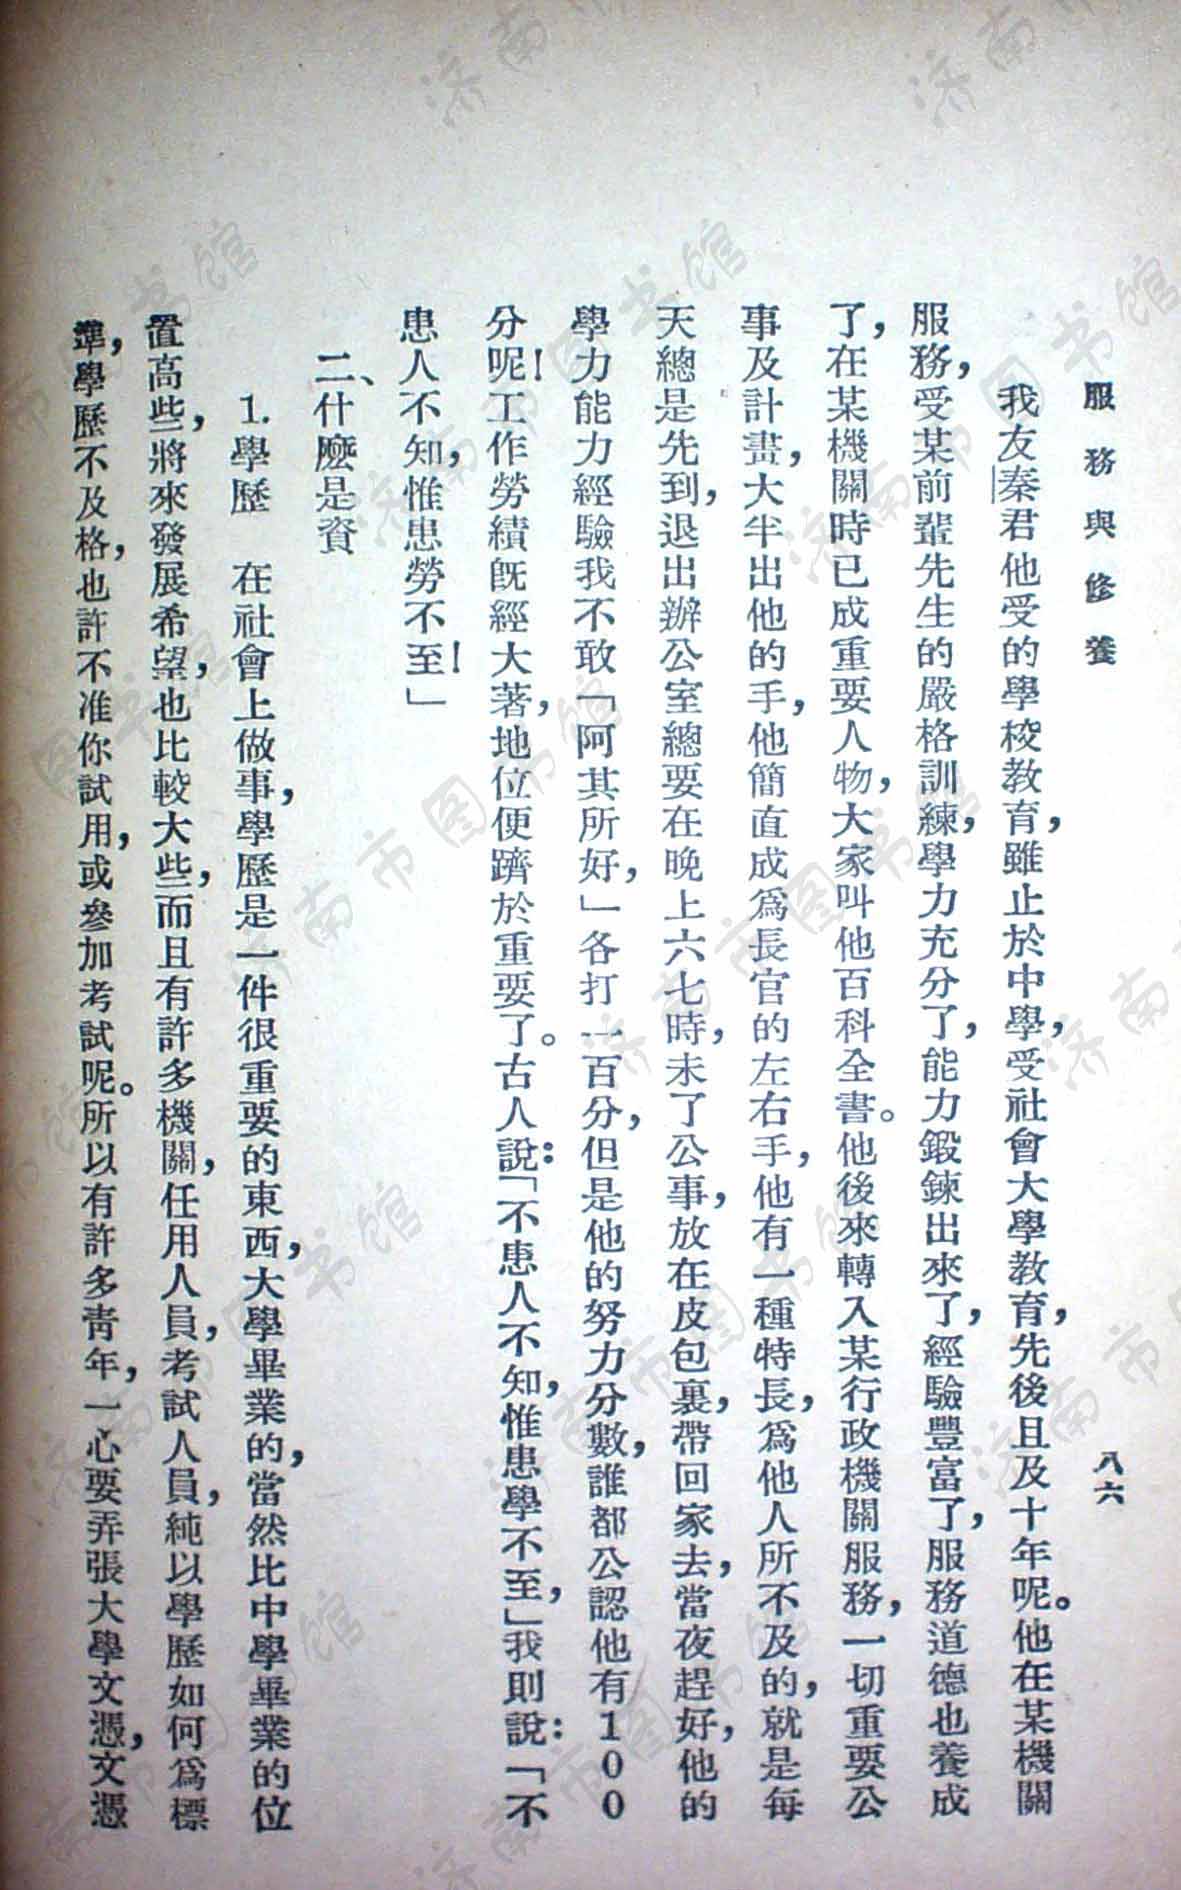 服務與修養
八六
我友秦君他受的學校教育，雖止於中學，受社會大學教育，先後且及十年呢。他在某機關
服務，受某前輩先生的嚴格訓練，學力充分了，能力鍛鍊出來了，經驗豐富了，服務道德也養成
了，在某機關時已成重要人物，大家叫他百科全書。他後來轉入某行政機關服務，一切重要公
事及計畫，大半出他的手，他簡直成爲長官的左右手，他有一種特長，爲他人所不及的，就是每
天總是先到，退出辦公室總要在晚上六七時，未了公事，放在皮包裏，帶回家去，當夜趕好，他的
學力能力經驗我不敢「阿其所好，」各打一百分，但是他的努力分數，誰都公認他有100
分呢！工作勞績旣經大著，地位便躋於重要了。古人說：「不患人不知，惟患學不至，」我則說：「不
患人不知，惟患勞不至！」
二、什麼是資
1.學歷　在社會上做事，學歷是一件很重要的東西，大學畢業的，當然比中學畢業的位
置高些，將來發展希望，也比較大些，而且有許多機關，任用人員，考試人員，純以學歷如何爲標
準，學歷不及格，也許不准你試用，或參加考試呢。所以有許多靑年，一心要弄張大學文憑，文憑
济南市图书馆